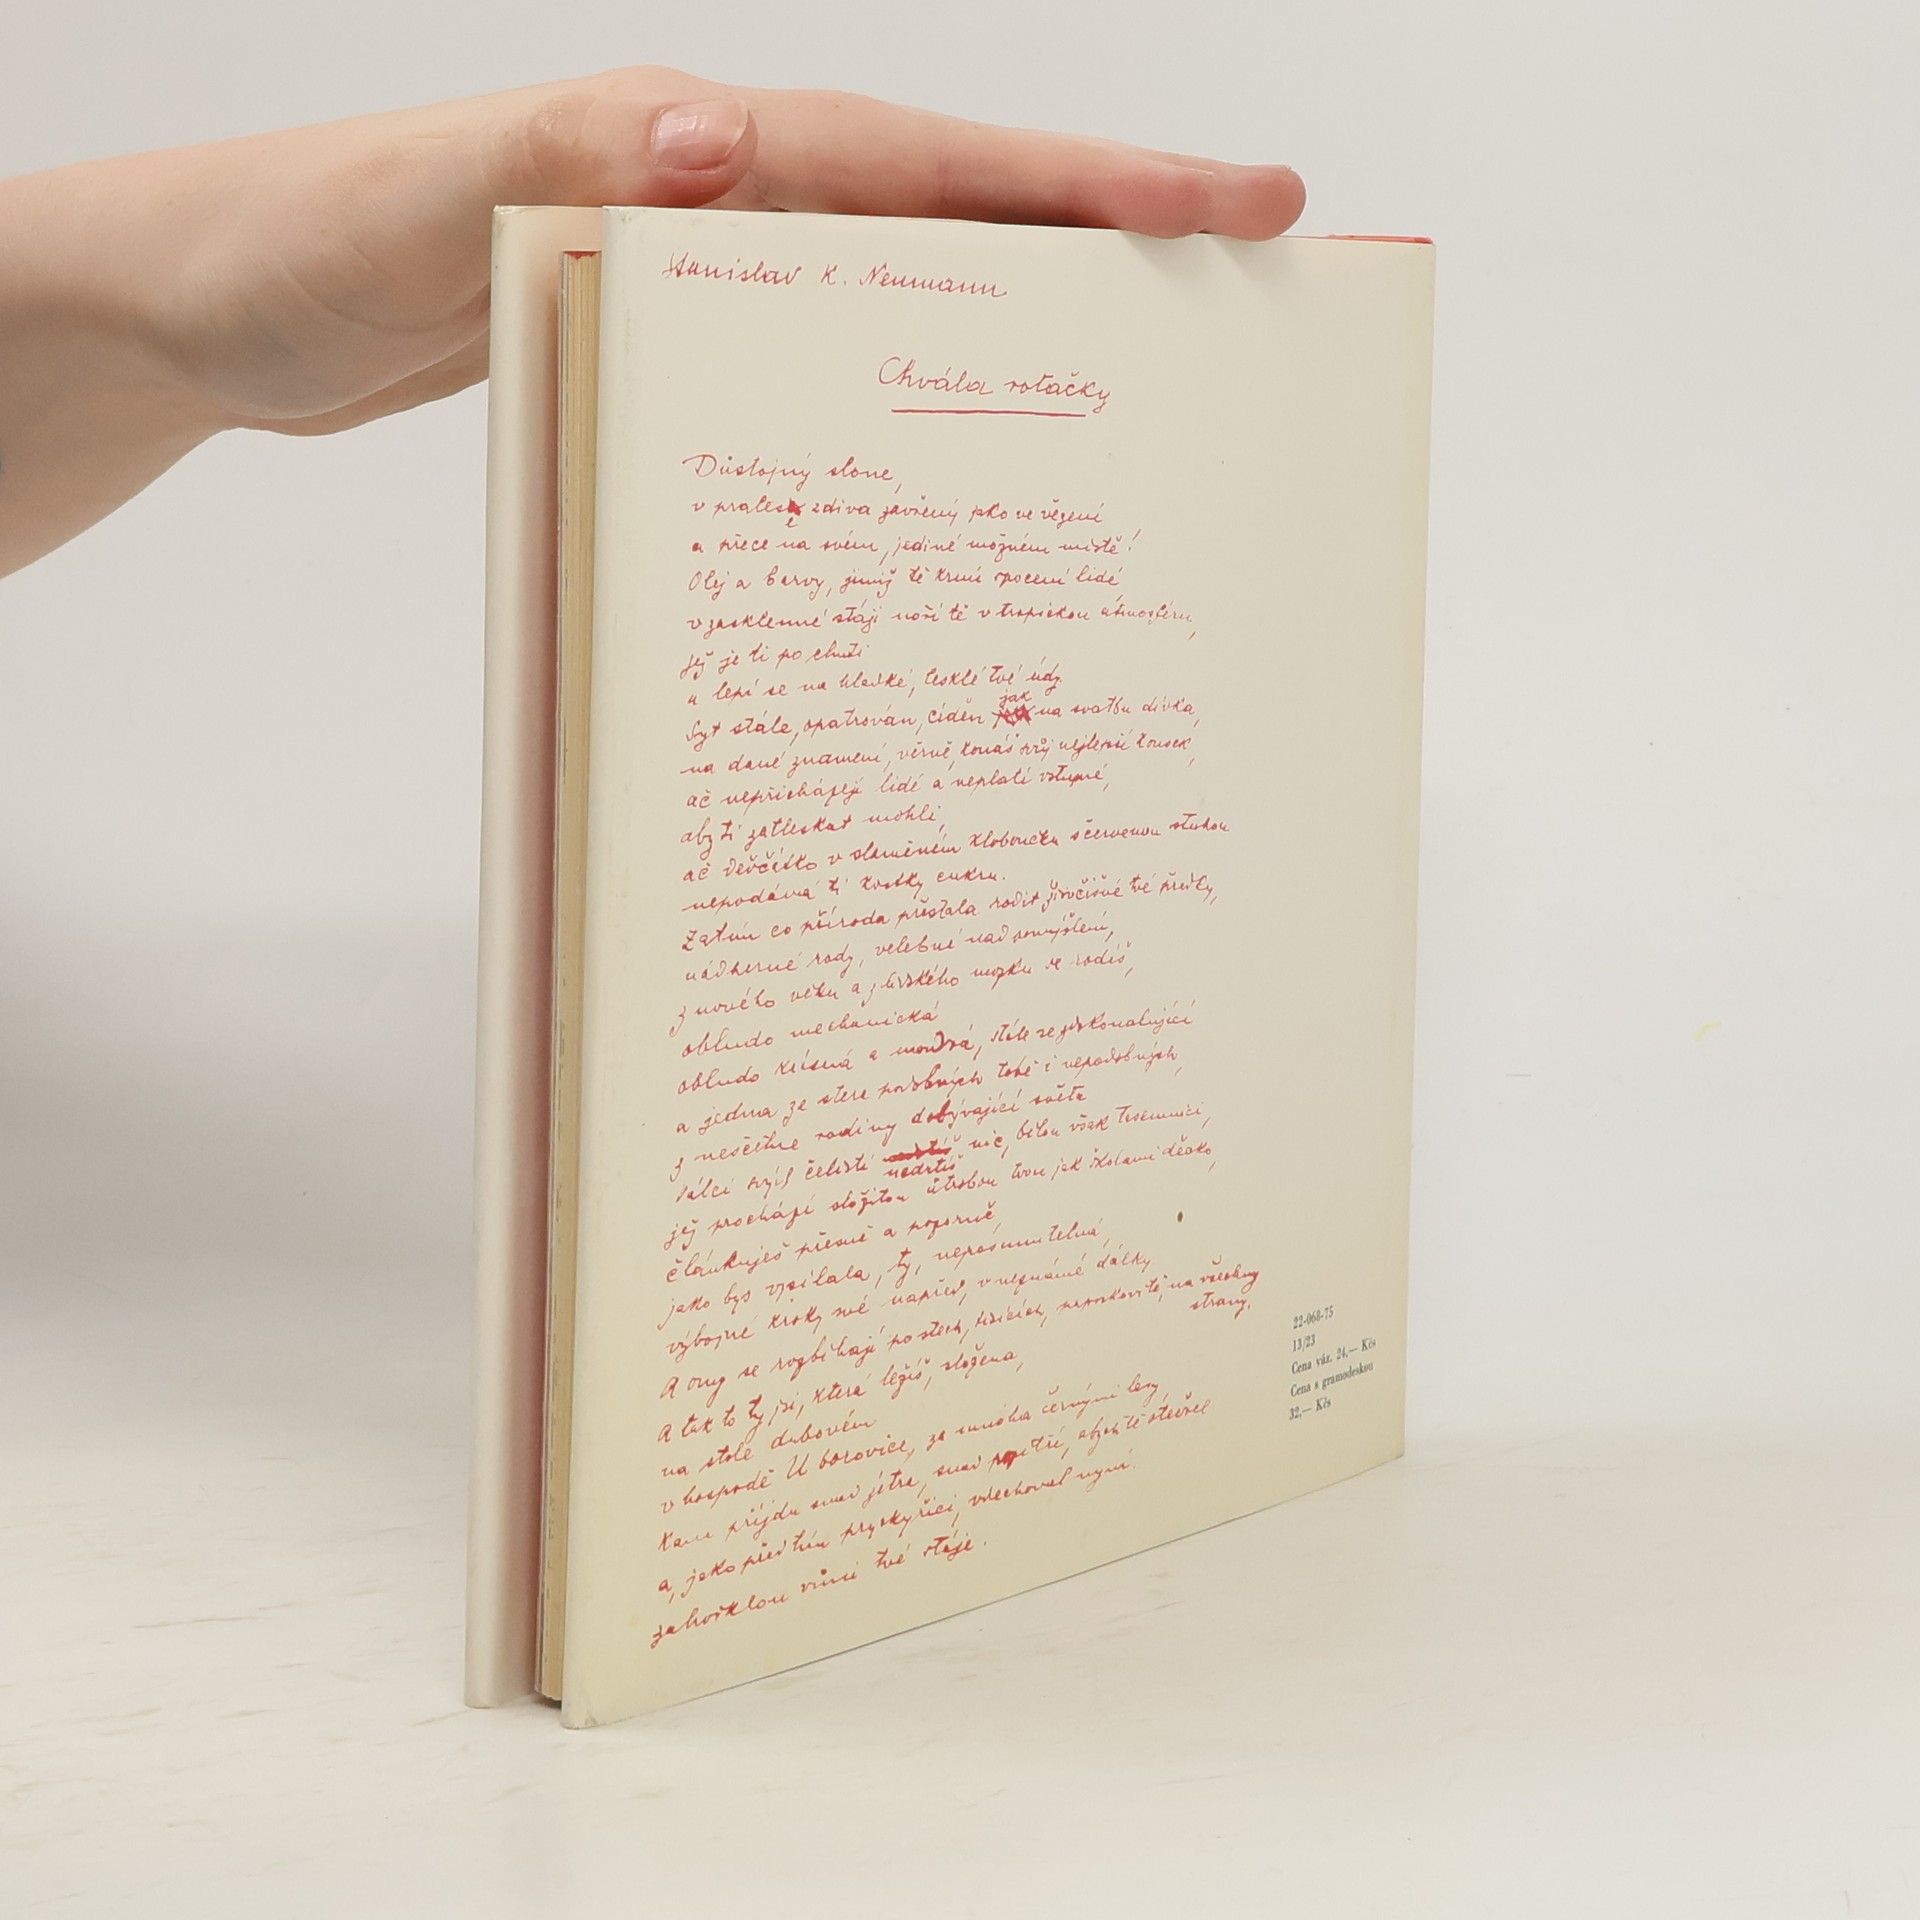 Stanislav K. Neumann
Chvála rotačky
Důstojný slone,
v pralese zdiva zavřený jako ve vězení
a přece na svém, jedině možném místě!
Olej a barvy, jimiž tě krmí zpocení lidé
v zasklenné stáji noří tě v tropickou atmosféru,
jež je ti po chuti
a lepí se na hladké, lesklé tvé údy.
Syt stále, opatrován, cíděn jak na svatbu dívka,
na dané znamení, věrně, konáš svůj nejlepší kousek,
ač nepřicházejí lidé a neplatí vstupné,
aby ti zatleskat mohli,
ač děvčátko v slaměném kloboučku s červenou stuhou
nepodává ti kostky cukru.
Zatím co příroda přestala rodit živočišné tvé předky,
nádherné rody, velebné nad pomyšlení,
z nového věku a z lidského mozku se rodíš,
obludo mechanická
obludo krásná a moudrá, stále se zdokonalující
a jedna ze stera podobných tobě i nepodobných,
z nesčetné rodiny dobývající světa
Válci svých čelistí nedrtíš nic, bílou však trsemnici,
jež prochází složitou útrobou tvou jak školami děcko,
článkuješ přesně a pozorně,
jako bys vysílala, ty, neposunutelná,
výbojné kroky své napřed, v neznámé dálky
A ony se rozbíhají po stech, tisících, paprskovitě, na všechny
strany.
A tak to ty jsi, která ležíš, složena,
na stole dubovém
v hospodě U borovice, za mnoha černými lesy,
kam přijdu snad zítra, snad pozítří, abych tě otevřel
a, jako předtím pryskyřici, vdechoval nyní
zahořklou vůni tvé stáje.
22-068-75
13/23
Cena váz. 24,— Kčs
Cena s gramodeskou
32,— Kčs